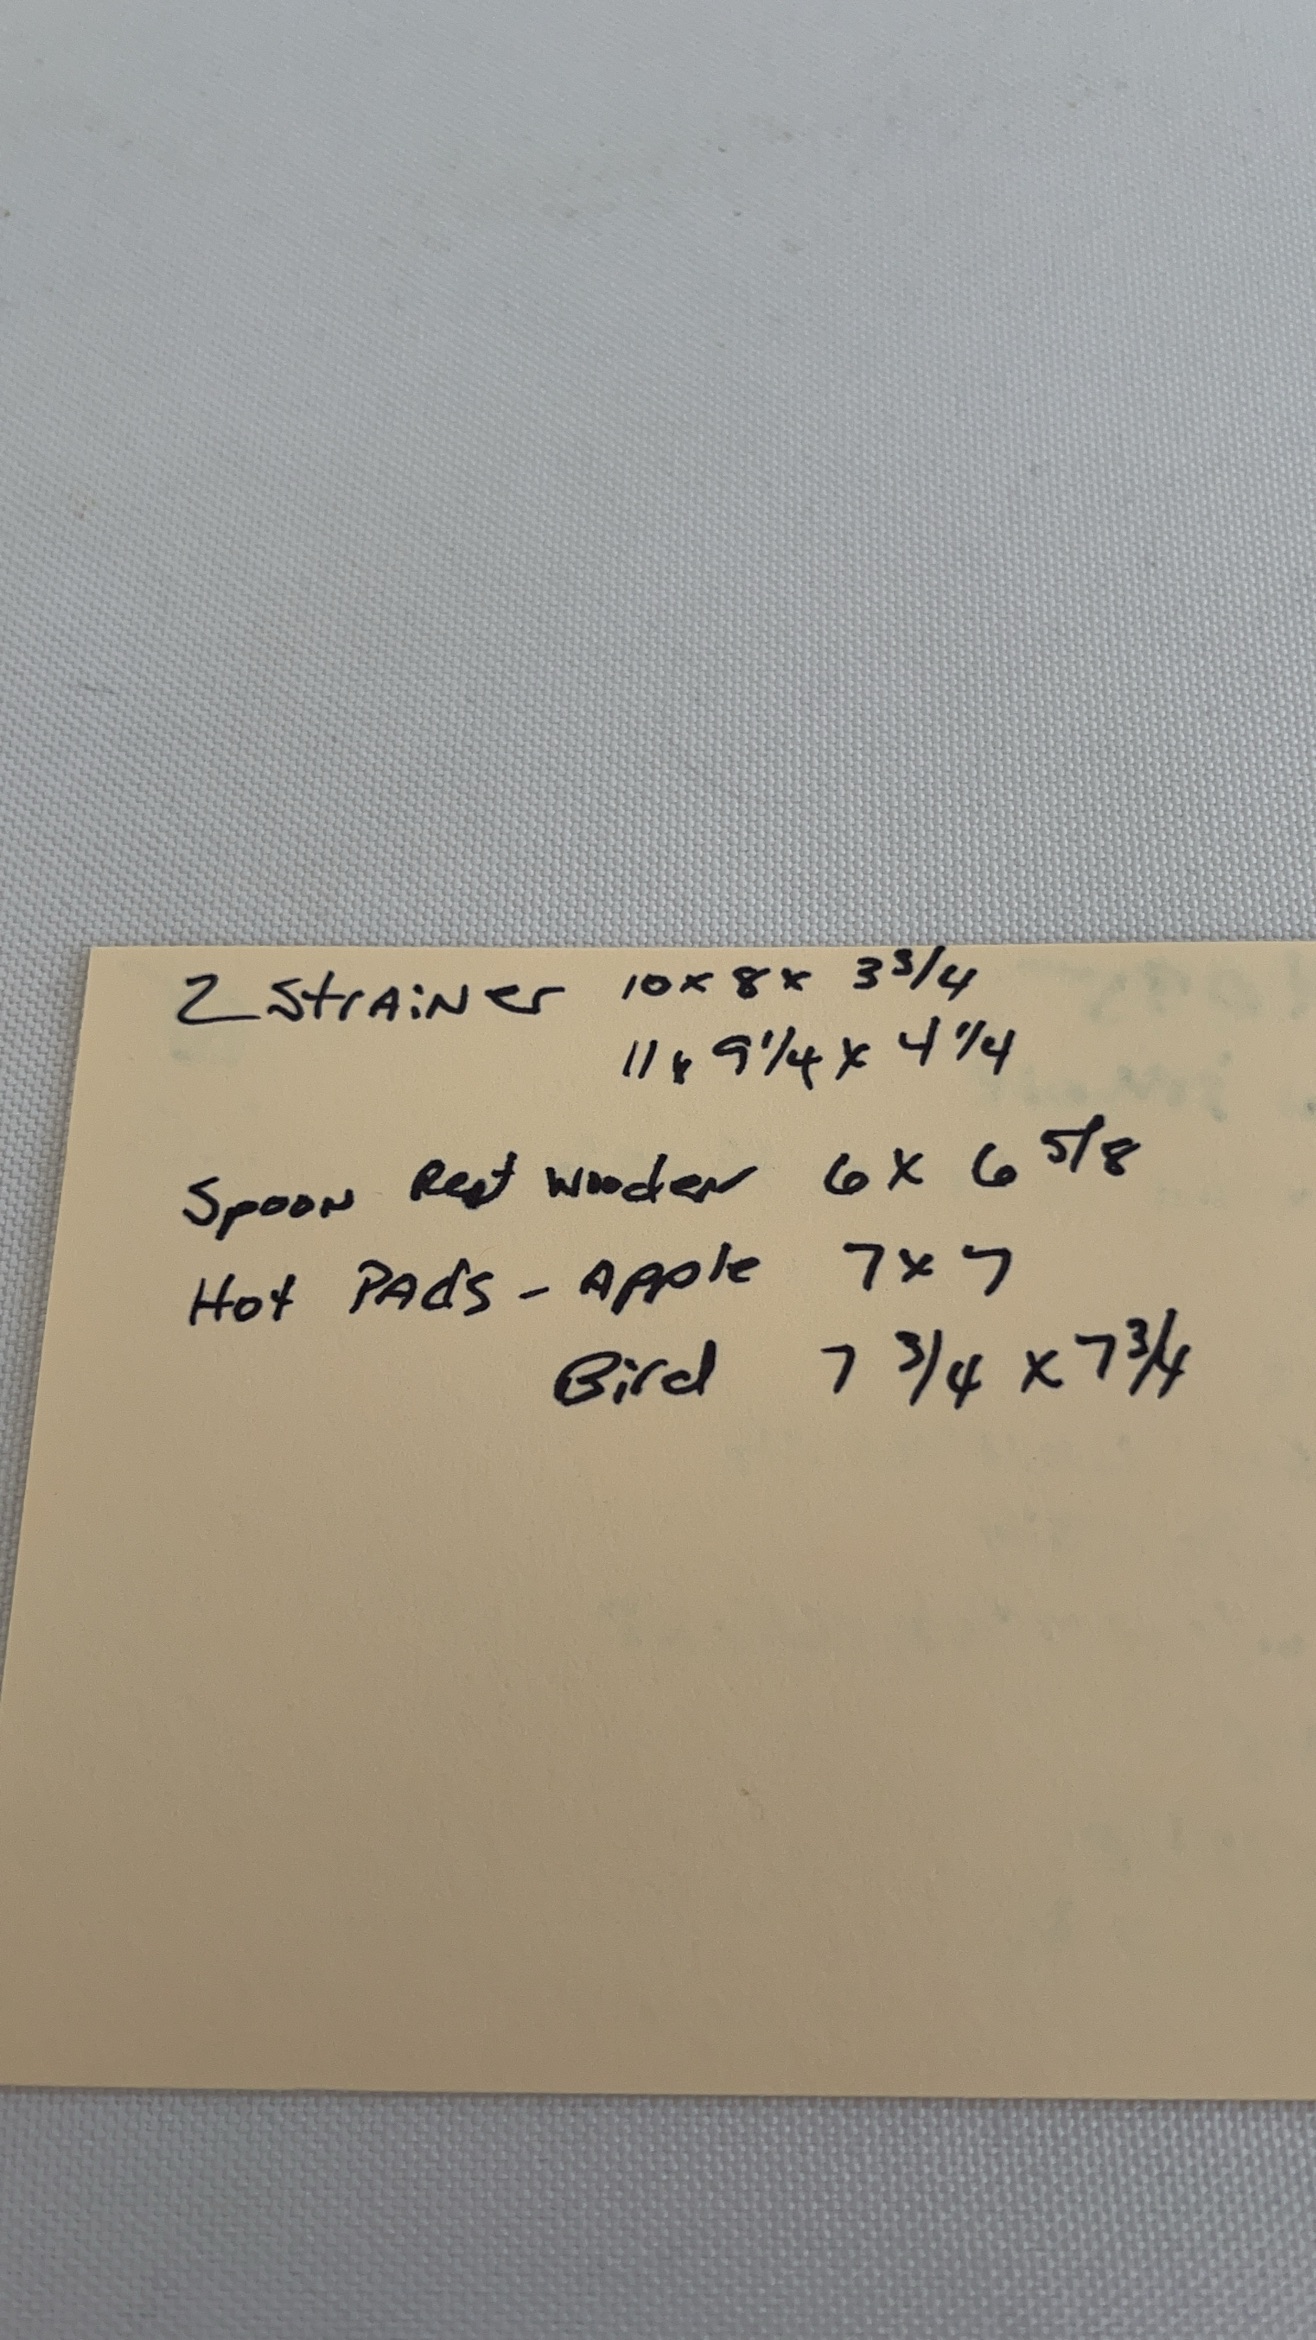 2 Strainer 10 x 8 x 3 3/4
11 x 9 1/4 x 4 1/4
Spoon Rest Wooden 6 x 6 5/8
Hot Pads - Apple 7 x 7
Bird 7 3/4 x 7 3/4